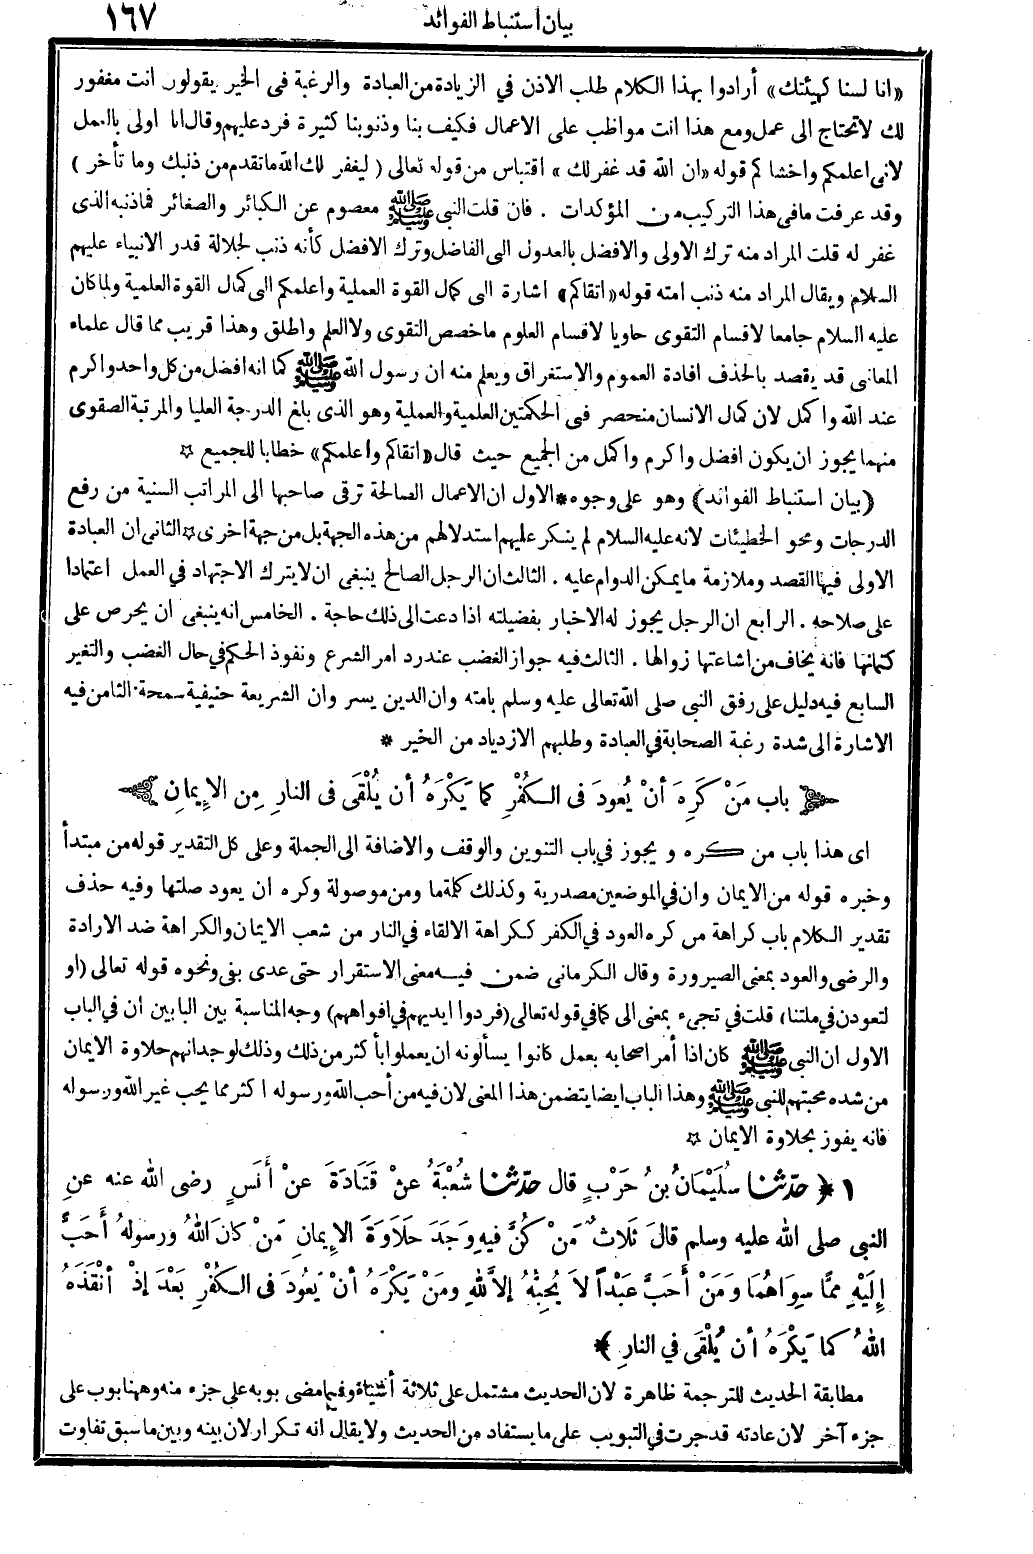 بيان استنباط الفوائد
١٦٧
«انا لسنا كهيئتك» أرادوا بهذا الكلام طلب الاذن في الزيادة من العبادة والرغبة فى الخير يقولون انت مغفور
لك لا تحتاج الى عمل ومع هذا انت مواظب على الاعمال فكيف بنا وذنوبنا كثيرة فرد عليهم وقال انا اولى بالعمل
لانى اعلمكم واخشاكم قوله «ان الله قد غفر لك» اقتباس من قوله تعالى (ليغفر لك الله ما تقدم من ذنبك وما تأخر)
وقد عرفت ما فى هذا التركيب من المؤكدات . فان قلت النبى ﷺ معصوم عن الكبائر والصغائر فما ذنبه الذى
غفر له قلت المراد منه ترك الاولى والافضل بالعدول الى الفاضل وترك الافضل كأنه ذنب لجلالة قدر الانبياء عليهم
السلام ويقال المراد منه ذنب امته قوله «اتقاكم» اشارة الى كمال القوة العملية واعلمكم الى كمال القوة العلمية ولما كان
عليه السلام جامعا لاقسام التقوى حاويا لاقسام العلوم ما خصص التقوى ولا العلم واطلق وهذا قريب مما قال علماء
المعانى قد يقصد بالحذف افادة العموم والاستغراق ويعلم منه ان رسول الله ﷺ كما انه افضل من كل واحد واكرم
عند الله واكمل لان كمال الانسان منحصر فى الحكمتين العلمية والعملية وهو الذى بلغ الدرجة العليا والمرتبة القصوى
منهما يجوز ان يكون افضل واكرم واكمل من الجميع حيث قال «اتقاكم وأعلمكم» خطابا للجميع ☆
(بيان استنباط الفوائد) وهو على وجوه * الاول ان الاعمال الصالحة ترقى صاحبها الى المراتب السنية من رفع
الدرجات ومحو الخطيئات لانه عليه السلام لم ينكر عليهم استدلالهم من هذه الجهة بل من جهة اخرى ☆ الثانى ان العبادة
الاولى فيها القصد وملازمة ما يمكن الدوام عليه . الثالث ان الرجل الصالح ينبغى ان لا يترك الاجتهاد في العمل اعتمادا
على صلاحه . الرابع ان الرجل يجوز له الاخبار بفضيلته اذا دعت الى ذلك حاجة . الخامس انه ينبغى ان يحرص على
كتمانها فانه يخاف من اشاعتها زوالها . الثالث فيه جواز الغضب عند رد امر الشرع ونفوذ الحكم في حال الغضب والتغير
السابع فيه دليل على رفق النبى صلى الله تعالى عليه وسلم بامته وان الدين يسر وان الشريعة حنيفية سمحة . الثامن فيه
الاشارة الى شدة رغبة الصحابة في العبادة وطلبهم الازدياد من الخير *
باب مَنْ كَرِهَ أَنْ يَعُودَ فى الكُفْرِ كما يَكْرَهُ أن يُلْقَى فى النار مِن الإِيمانِ
اى هذا باب من كره و يجوز في باب التنوين والوقف والاضافة الى الجملة وعلى كل التقدير قوله من مبتدأ
وخبره قوله من الايمان وان في الموضعين مصدرية وكذلك كلمة ما ومن موصولة وكره ان يعود صلتها وفيه حذف
تقدير الكلام باب كراهة من كره العود في الكفر ككراهة الالقاء في النار من شعب الايمان والكراهة ضد الارادة
والرضى والعود بمعنى الصيرورة وقال الكرمانى ضمن فيه معنى الاستقرار حتى عدى بفى ونحوه قوله تعالى (او
لتعودن في ملتنا) قلت في تجىء بمعنى الى كما في قوله تعالى (فردوا ايديهم في افواههم) وجه المناسبة بين البابين ان في الباب
الاول ان النبى ﷺ كان اذا أمر اصحابه بعمل كانوا يسألونه ان يعملوا بأكثر من ذلك وذلك لوجدانهم حلاوة الايمان
من شده محبتهم للنبى ﷺ وهذا الباب ايضا يتضمن هذا المعنى لان فيه من أحب الله ورسوله اكثر مما يحب غير الله ورسوله
فانه يفوز بحلاوة الايمان ☆
١ ﴿ حدّثنا سُلَيْمَانُ بنُ حَرْبٍ قال حدّثنا شُعْبَةُ عنْ قَتَادَةَ عنْ أَنَسٍ رضى الله عنه عنِ
النبى صلى الله عليه وسلم قالَ ثَلاثٌ مَنْ كُنَّ فيهِ وَجَدَ حَلَاوَةَ الإِيمانِ مَنْ كانَ اللهُ ورسولهُ أَحَبَّ
إِلَيْهِ ممَّا سِوَاهُمَا وَمَنْ أَحَبَّ عَبْداً لاَ يُحِبُّهُ إلاَّ للهِ ومَنْ يَكْرَهُ أنْ يَعُودَ فى الكُفْرِ بَعْدَ إذْ أنْقَذَهُ
اللهُ كما يَكْرَهُ أن يُلْقَى في النارِ ﴾
مطابقة الحديث للترجمة ظاهرة لان الحديث مشتمل على ثلاثة أشياء وفيما مضى بوبه على جزء منه وههنا بوب على
جزء آخر لان عادته قد جرت في التبويب على ما يستفاد من الحديث ولا يقال انه تكرار لان بينه وبين ما سبق تفاوت